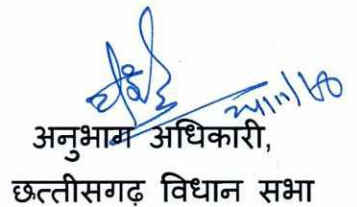 अनुभाग अधिकारी,
छत्तीसगढ़ विधान सभा